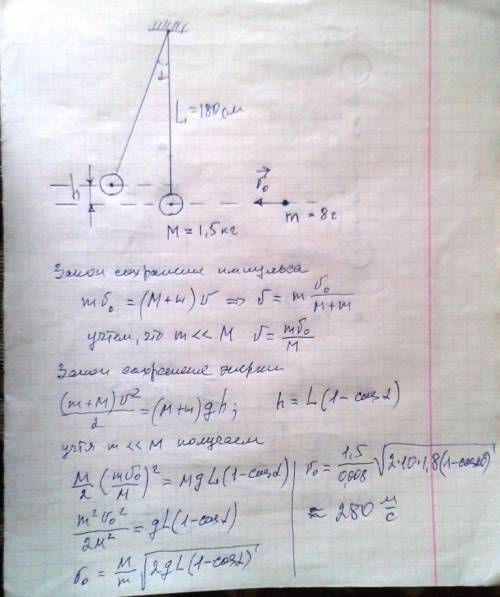 α
L = 180 см
h
v⃗₀
m = 8 г
M = 1,5 кг
Закон сохранения импульса
mv₀ = (M+m)v ⇒ v = m v₀/(M+m)
учтем, что m << M v = mv₀/M
Закон сохранения энергии
(m+M)v²/2 = (M+m)gh; h = L(1-cosα)
учтя m << M получаем
M/2 (mv₀/M)² = MgL(1-cosα)
m²v₀²/2M² = gL(1-cosα)
v₀ = M/m √(2gL(1-cosα))
v₀ = 1,5/0,008 √(2·10·1,8(1-cos20°))
≈ 280 м/с